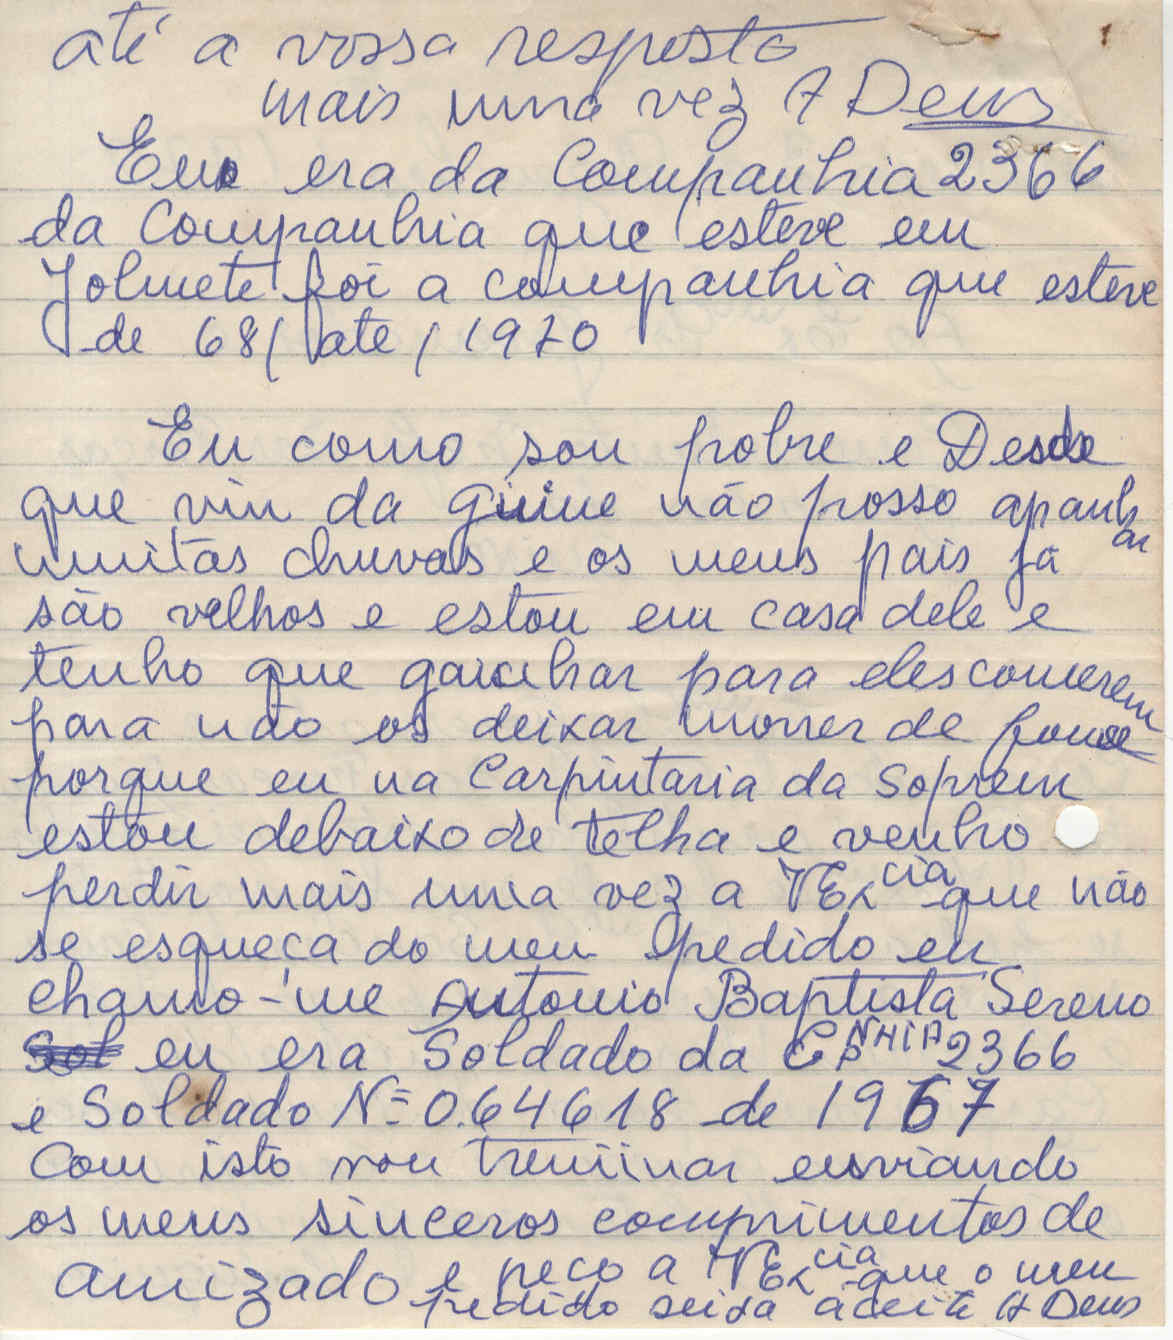 até a vossa resposta
mais uma vez A Deus
Eu era da Companhia 2366
da Companhia que esteve em
Jolmete foi a companhia que esteve
de 68/ate/1970
Eu como sou pobre e Desde
que vin da guine não posso apanhar
muitas chuvas e os meus pais já
são velhos e estou em casa dele e
tenho que gainhar para eles comerem
para não os deixar morrer de fome
porque eu na Carpintaria da Soprem
estou debaixo de telha e venho
perdir mais uma vez a VExcia que não
se esqueça do meu pedido eu
chamo-me Antonio Baptista Sereno
Sol eu era Soldado da CPNHIA 2366
e Soldado Nº 064618 de 1967
Com isto vou treminar enviando
os meus sinceros comprimentos de
amizado e peço a VExcia que o meu
pedido seija aceite A Deus